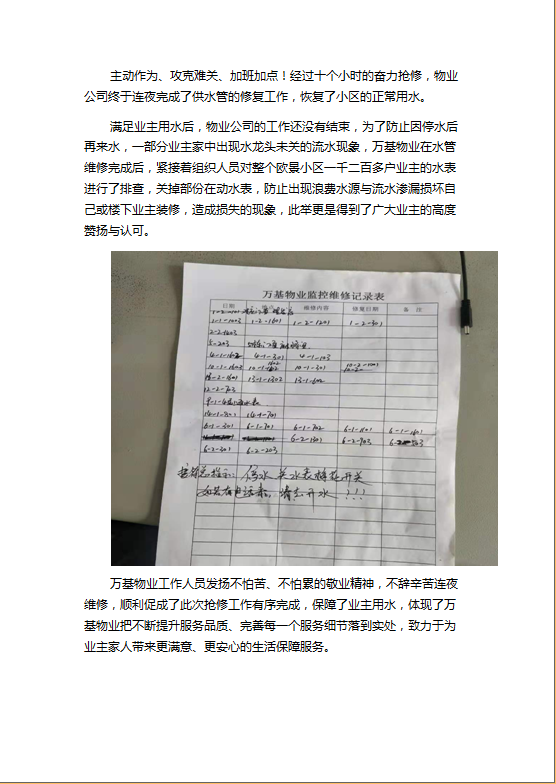 主动作为、攻克难关、加班加点！经过十个小时的奋力抢修，物业
公司终于连夜完成了供水管的修复工作，恢复了小区的正常用水。
满足业主用水后，物业公司的工作还没有结束，为了防止因停水后
再来水，一部分业主家中出现水龙头未关的流水现象，万基物业在水管
维修完成后，紧接着组织人员对整个欧景小区一千二百多户业主的水表
进行了排查，关掉部份在动水表，防止出现浪费水源与流水渗漏损坏自
己或楼下业主装修，造成损失的现象，此举更是得到了广大业主的高度
赞扬与认可。
万基物业监控维修记录表
日期 维修内容 修复日期 备 注
1-1-1003 1-2-1601 1-2-1201 1-2-301
2-2-1603
5-203
4-1-1602 4-1-301 4-1-103
10-1-1603 10-1-301
13-1-1302 13-1-602
12-2-703
14-1-801 14-1-701
6-1-301 6-1-701 6-1-702 6-1-1101 6-1-1601
6-2-1301 6-2-903
6-2-301 6-2-203
停水 关水表
请勿开水 !!!
万基物业工作人员发扬不怕苦、不怕累的敬业精神，不辞辛苦连夜
维修，顺利促成了此次抢修工作有序完成，保障了业主用水，体现了万
基物业把不断提升服务品质、完善每一个服务细节落到实处，致力于为
业主家人带来更满意、更安心的生活保障服务。